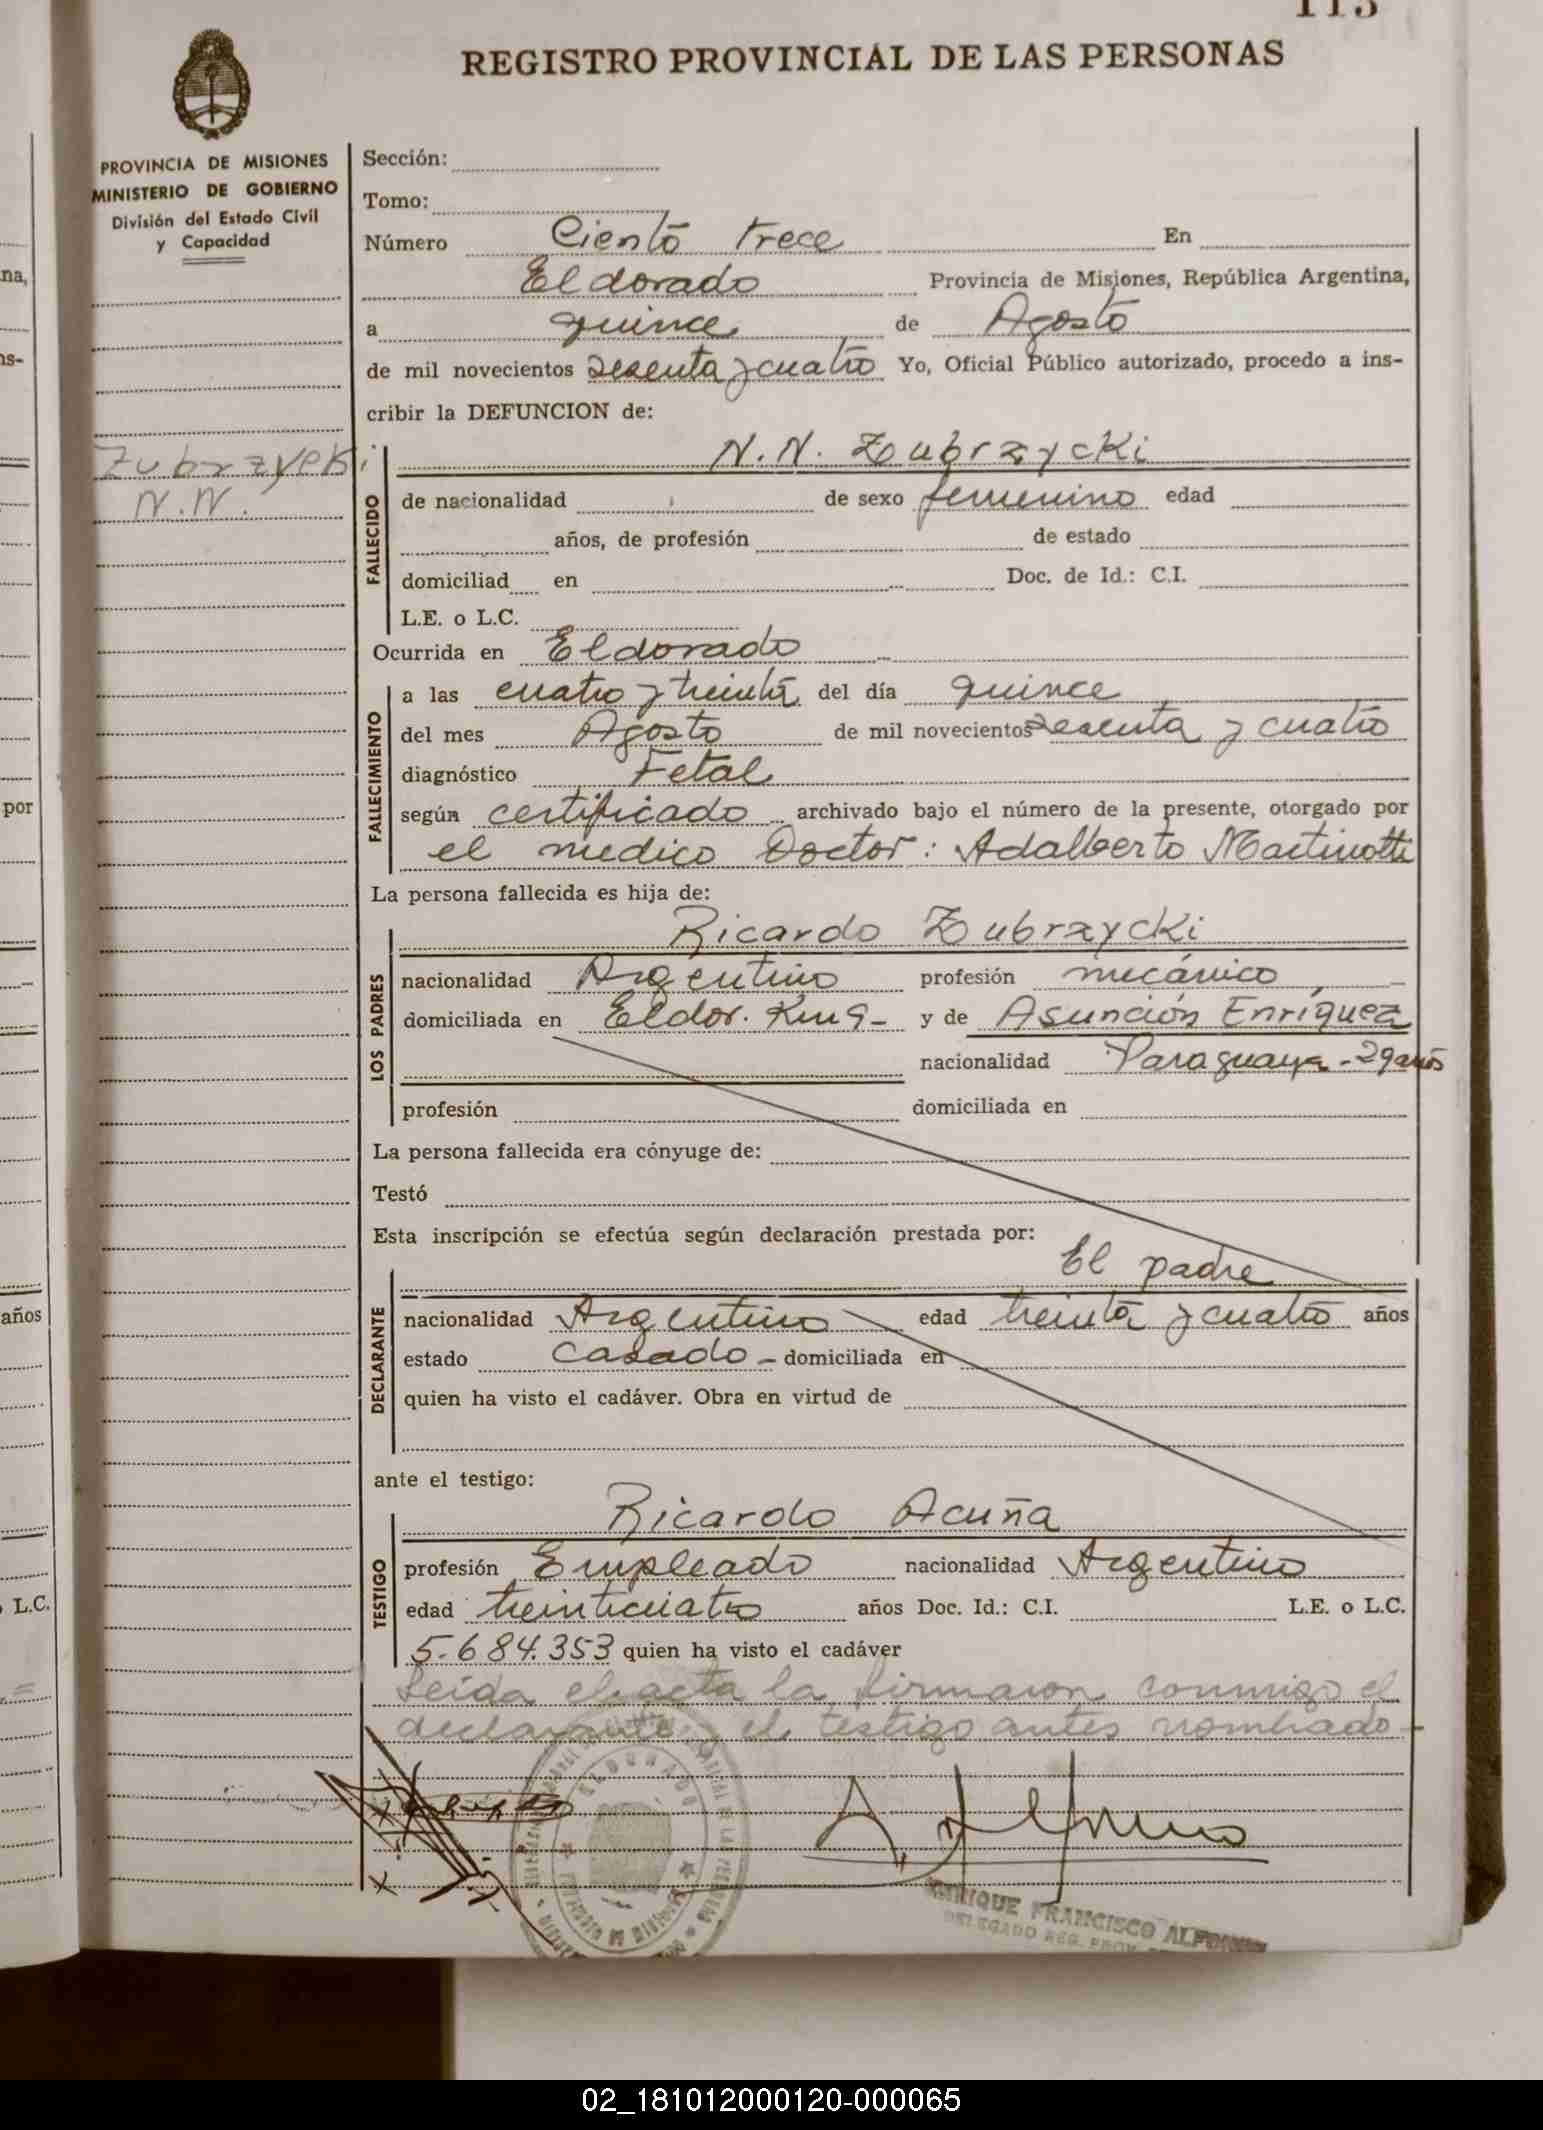 113
REGISTRO PROVINCIAL DE LAS PERSONAS
PROVINCIA DE MISIONES
MINISTERIO DE GOBIERNO
División del Estado Civil
y Capacidad
Zubrzycki
N.N.
Sección:
Tomo:
Número Ciento trece En
Eldorado Provincia de Misiones, República Argentina,
a quince de Agosto
de mil novecientos sesenta y cuatro Yo, Oficial Público autorizado, procedo a ins-
cribir la DEFUNCION de:
N.N. Zubrzycki
FALLECIDO
de nacionalidad de sexo femenino edad
años, de profesión de estado
domiciliad en Doc. de Id.: C.I.
L.E. o L.C.
Ocurrida en Eldorado
FALLECIMIENTO
a las cuatro y treinta del día quince
del mes Agosto de mil novecientos sesenta y cuatro
diagnóstico Fetal
según certificado archivado bajo el número de la presente, otorgado por
el medico Doctor: Adalberto Martinotti
La persona fallecida es hija de:
LOS PADRES
Ricardo Zubrzycki
nacionalidad Argentino profesión mecánico
domiciliada en Eldor. Km 9- y de Asunción Enríquez
nacionalidad Paraguaya - 29 años
profesión domiciliada en
La persona fallecida era cónyuge de:
Testó
Esta inscripción se efectúa según declaración prestada por:
DECLARANTE
El padre
nacionalidad Argentino edad treinta y cuatro años
estado casado - domiciliada en
quien ha visto el cadáver. Obra en virtud de
ante el testigo:
TESTIGO
Ricardo Acuña
profesión Empleado nacionalidad Argentino
edad treinticuatro años Doc. Id.: C.I. L.E. o L.C.
5.684.353 quien ha visto el cadáver
Leída el acta la firmaron conmigo el
declarante y el testigo antes nombrado-
ELDORADO
ENRIQUE FRANCISCO ALFONSO
DELEGADO REG. PROV.
na,
ns-
por
años
L.C.
02_181012000120-000065